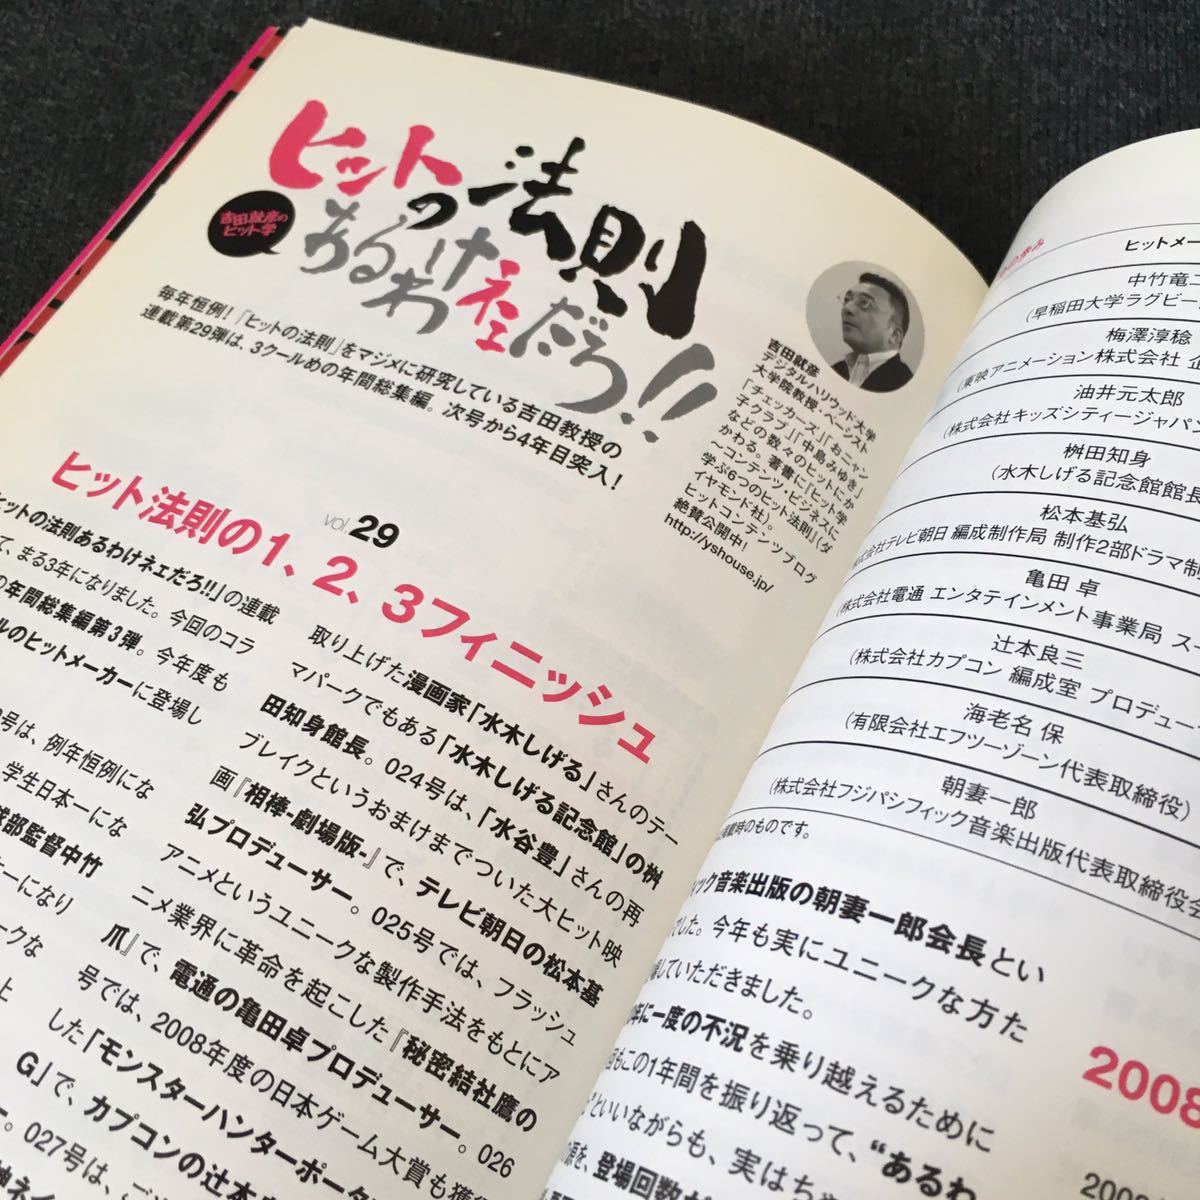 ヒットの法則
あるわけネェだろ!!
吉田就彦の
ヒット学
毎年恒例！「ヒットの法則」をマジメに研究している吉田教授の
連載第29弾は、3クールめの年間総集編。次号から4年目突入！
吉田就彦
デジタルハリウッド大学
大学院教授・ベーシスト
「チェッカーズ」「おニャン
子クラブ」「中島みゆき」
などの数々のヒットにか
かわる。著書に『ヒット学
〜コンテンツ・ビジネスに
学ぶ6つのヒット法則』（ダ
イヤモンド社）。
ヒットコンテンツブログ
絶賛公開中！
http://yshouse.jp/
vol.29
ヒット法則の1、2、3フィニッシュ
ヒットの法則あるわけネェだろ!!」の連載
て、まる3年になりました。今回のコラ
の年間総集編第3弾。今年度も
ルのヒットメーカーに登場し
号は、例年恒例にな
学生日本一にな
部監督中竹
ーになり
ークな
上
取り上げた漫画家「水木しげる」さんのテー
マパークでもある「水木しげる記念館」の桝
田知身館長。024号は、「水谷豊」さんの再
ブレイクというおまけまでついた大ヒット映
画『相棒-劇場版-』で、テレビ朝日の松本基
弘プロデューサー。025号では、フラッシュ
アニメというユニークな製作手法をもとにア
ニメ業界に革命を起こした『秘密結社鷹の
爪』で、電通の亀田卓プロデューサー。026
号では、2008年度の日本ゲーム大賞も獲得
した「モンスターハンターポータ
G」で、カプコンの辻本
027号は、
の歩み
ヒットメー
中竹竜二
（早稲田大学ラグビー
梅澤淳稔
（東映アニメーション株式会社 企
油井元太郎
（株式会社キッズシティージャパン
桝田知身
（水木しげる記念館館長
松本基弘
株式会社テレビ朝日 編成制作局 制作2部ドラマ制
亀田 卓
（株式会社電通 エンタテインメント事業局 スー
辻本良三
（株式会社カプコン 編成室 プロデュー
海老名 保
（有限会社エフツーゾーン代表取締役）
朝妻一郎
（株式会社フジパシフィック音楽出版代表取締役会
載時のものです。
ィック音楽出版の朝妻一郎会長とい
でした。今年も実にユニークな方た
場していただきました。
年に一度の不況を乗り越えるために
回もこの1年間を振り返って、“あるわ
”といいながらも、実はちゃ
を、登場回数が
2008